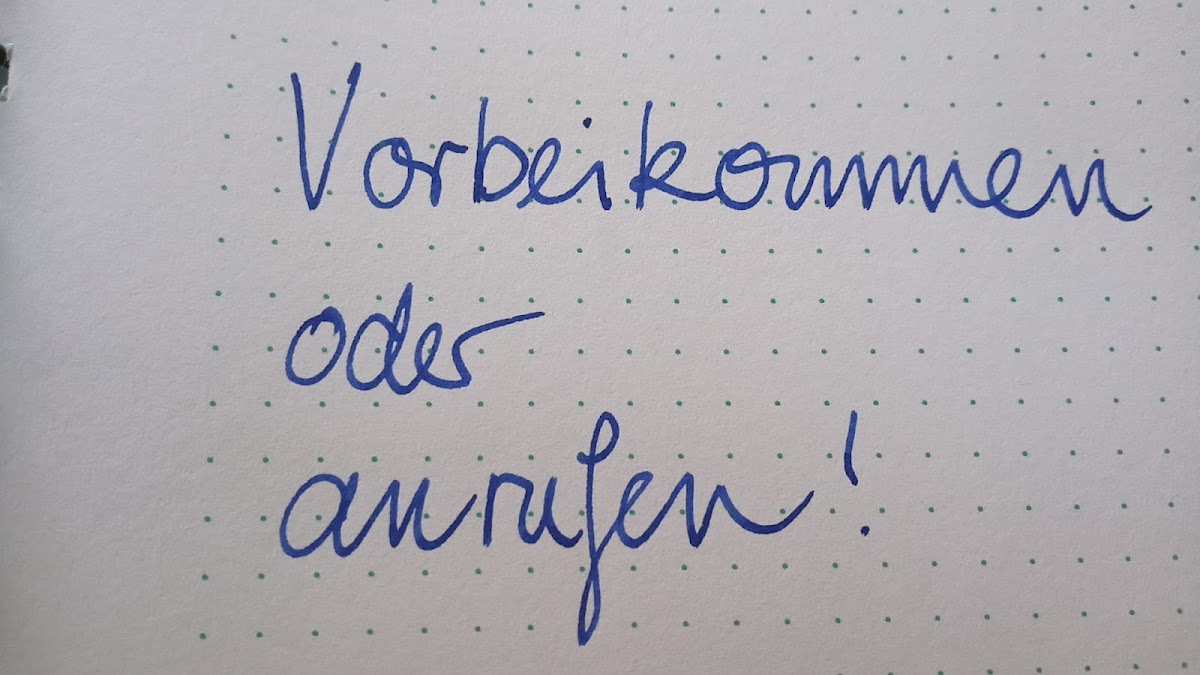 Vorbeikommen
oder
anrufen!